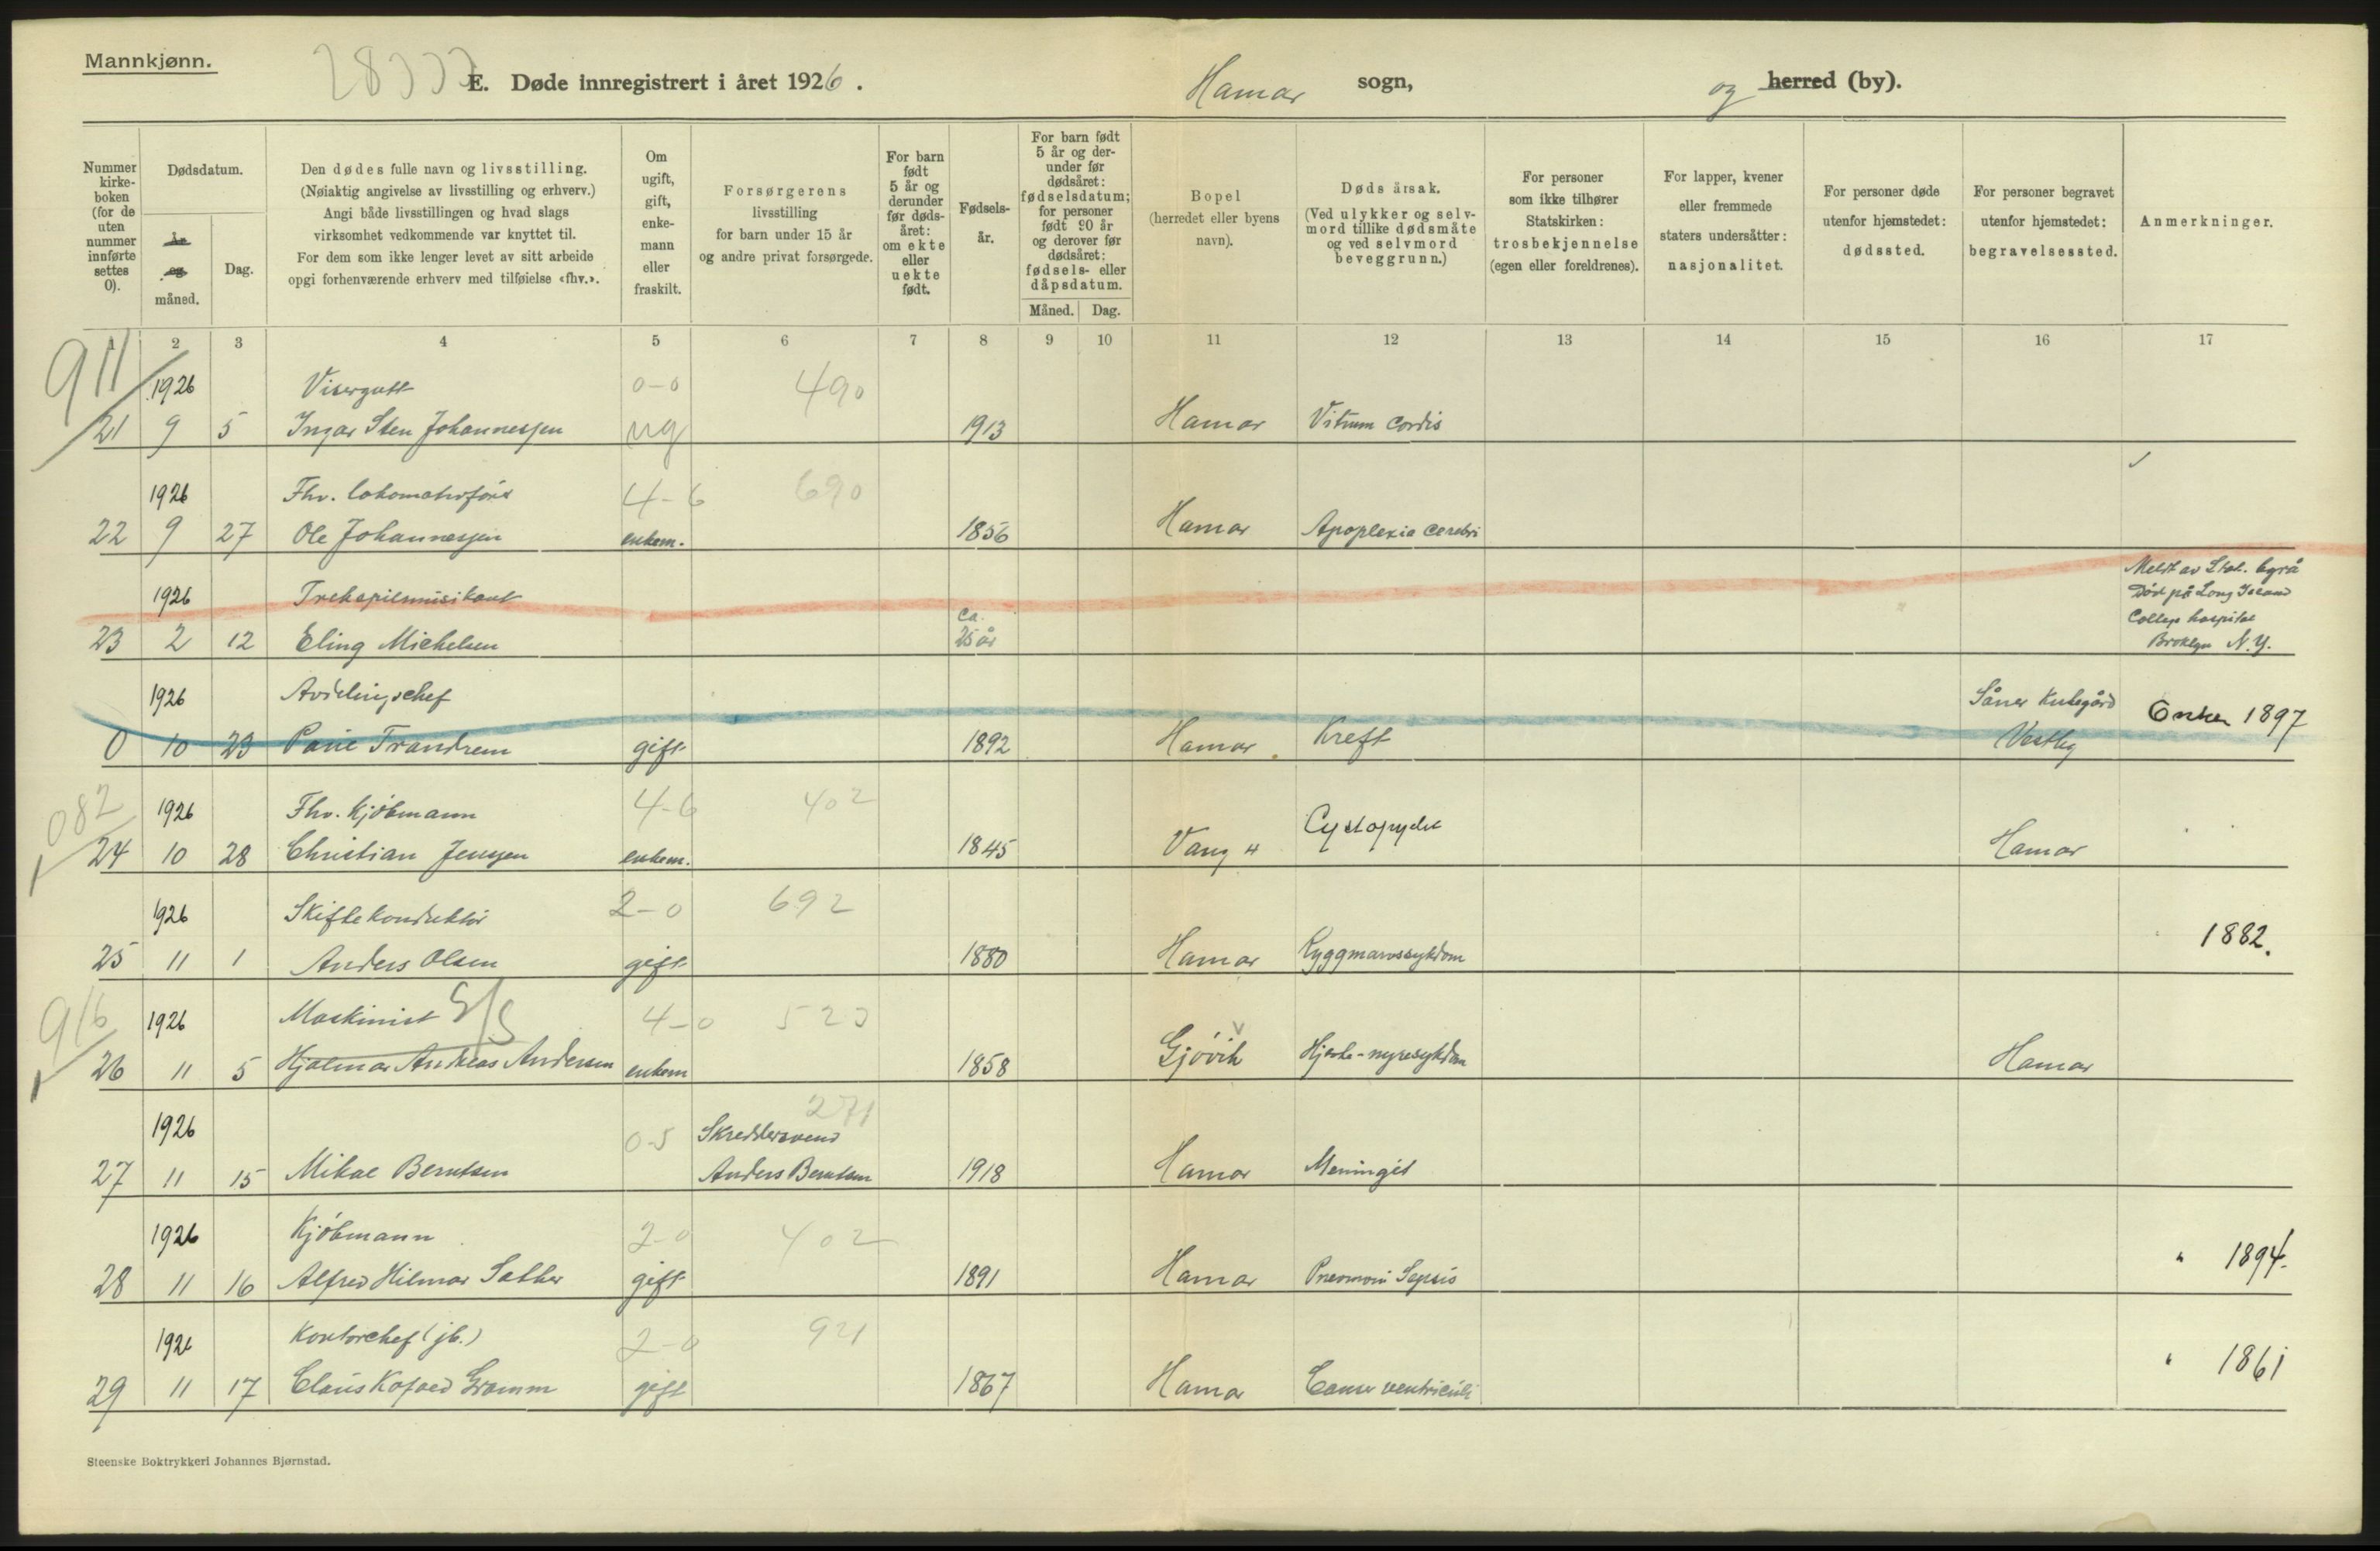 Mannkjønn.
E. Døde innregistrert i året 1926. Hamar sogn, og herred (by).
Nummer kirke-boken (for de uten nummer innførte settes 0).
Dødsdatum.
År og måned.
Dag.
Den dødes fulle navn og livsstilling.
(Nøiaktig angivelse av livsstilling og erhverv.)
Angi både livsstillingen og hvad slags
virksomhet vedkommende var knyttet til.
For dem som ikke lenger levet av sitt arbeide
opgi forhenværende erhverv med tilføielse «fhv.».
Om ugift, gift, enke-mann eller fraskilt.
Forsørgerens
livsstilling
for barn under 15 år
og andre privat forsørgede.
For barn født 5 år og derunder før døds-året: om ekte eller uekte født.
Fødsels-år.
For barn født 5 år og der-under før dødsåret: fødselsdatum; for personer født 90 år og derover før dødsåret: fødsels- eller dåpsdatum.
Måned. Dag.
Bopel
(herredet eller byens
navn).
Døds årsak.
(Ved ulykker og selv-
mord tillike dødsmåte
og ved selvmord
beveggrunn.)
For personer
som ikke tilhører
Statskirken:
trosbekjennelse
(egen eller foreldrenes).
For lapper, kvener
eller fremmede
staters undersåtter:
nasjonalitet.
For personer døde
utenfor hjemstedet:
dødssted.
For personer begravet
utenfor hjemstedet:
begravelsessted.
Anmerkninger.
1 2 3 4 5 6 7 8 9 10 11 12 13 14 15 16 17
911
1926 Visergutt 0-0 490
21 9 5 Ingar Sten Johannessen ug 1913 Hamar Vitium Cordis
1926 Fhv. lokomotivfører 4-6 690
22 9 27 Ole Johannessen enkem. 1856 Hamar Apoplexia cerebri
1926 Trekspilmusikant
23 2 12 Eling Michelsen ca. 25 år
Meldt av Stat. byrå
Død på Long Island
College hospital
Broklyn N.Y.
1926 Avdelingschef Såner kirkegård Enken 1897
0 10 23 Trandrem gift 1892 Hamar. Kreft Vestby
1082
1926 Fhv. kjøbmann 4-6 402
24 10 28 Christian Jenssen enkem. 1845 Vang H Hamar
1926 Skiftekonduktør 2-0 692 1882.
25 11 1 Anders Olsen gift 1880 Hamar Ryggmarvssykdom
916
1926 Maskinist S/S 4-0 523
26 11 5 Hjalmar Andreas Andersen enkem 1858 Gjøvik Hjerte-nyresykdom Hamar
1926 0-5 Skreddersvend 271
27 11 15 Mikal Berntsen Anders Berntsen 1918 Hamar Meningit
1926 Kjøbmann 2-0 402 " 1894.
28 11 16 Alfred Hilmar Sæther gift 1891 Hamar Pneumoni Sepsis
1926 Kontorchef (jb.) 2-0 921 " 1861
29 11 17 Claus Kofoed Gramm gift 1867 Hamar Cancer ventriculi
Steenske Boktrykkeri Johannes Bjørnstad.